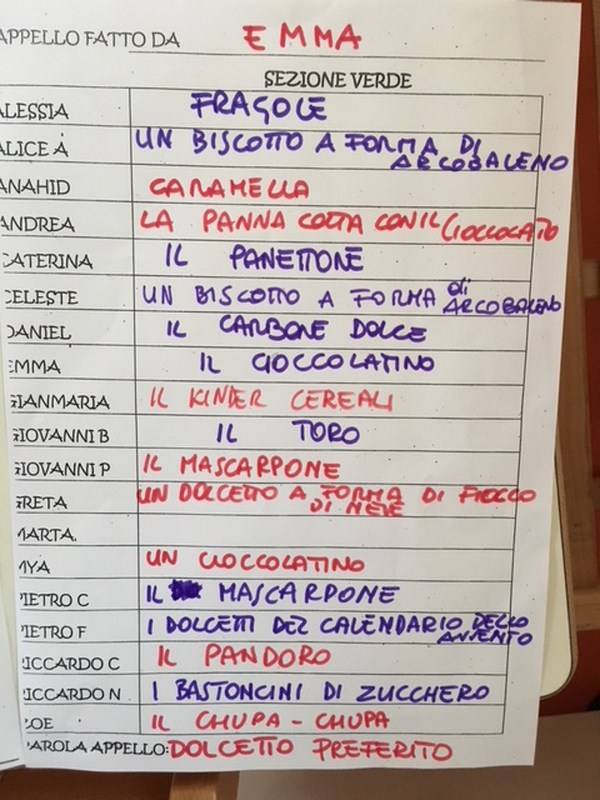 APPELLO FATTO DA EMMA
SEZIONE VERDE
ALESSIA FRAGOLE
ALICE A UN BISCOTTO A FORMA DI
ARCOBALENO
ANAHID CARAMELLA
ANDREA LA PANNA COTTA CON IL CIOCCOLATO
CATERINA IL PANETTONE
CELESTE UN BISCOTTO A FORMA di
ARCOBALENO
DANIEL IL CARBONE DOLCE
EMMA IL CIOCCOLATINO
GIANMARIA IL KINDER CEREALI
GIOVANNI B IL TORO
GIOVANNI P IL MASCARPONE
GRETA UN DOLCETTO A FORMA DI FIOCCO
DI NEVE
MARTA.
MYA UN CIOCCOLATINO
PIETRO C IL MASCARPONE
PIETRO F I DOLCETTI DEL CALENDARIO DELLO
AVVENTO
RICCARDO C IL PANDORO
RICCARDO N I BASTONCINI DI ZUCCHERO
ZOE IL CHUPA - CHUPA
PAROLA APPELLO: DOLCETTO PREFERITO